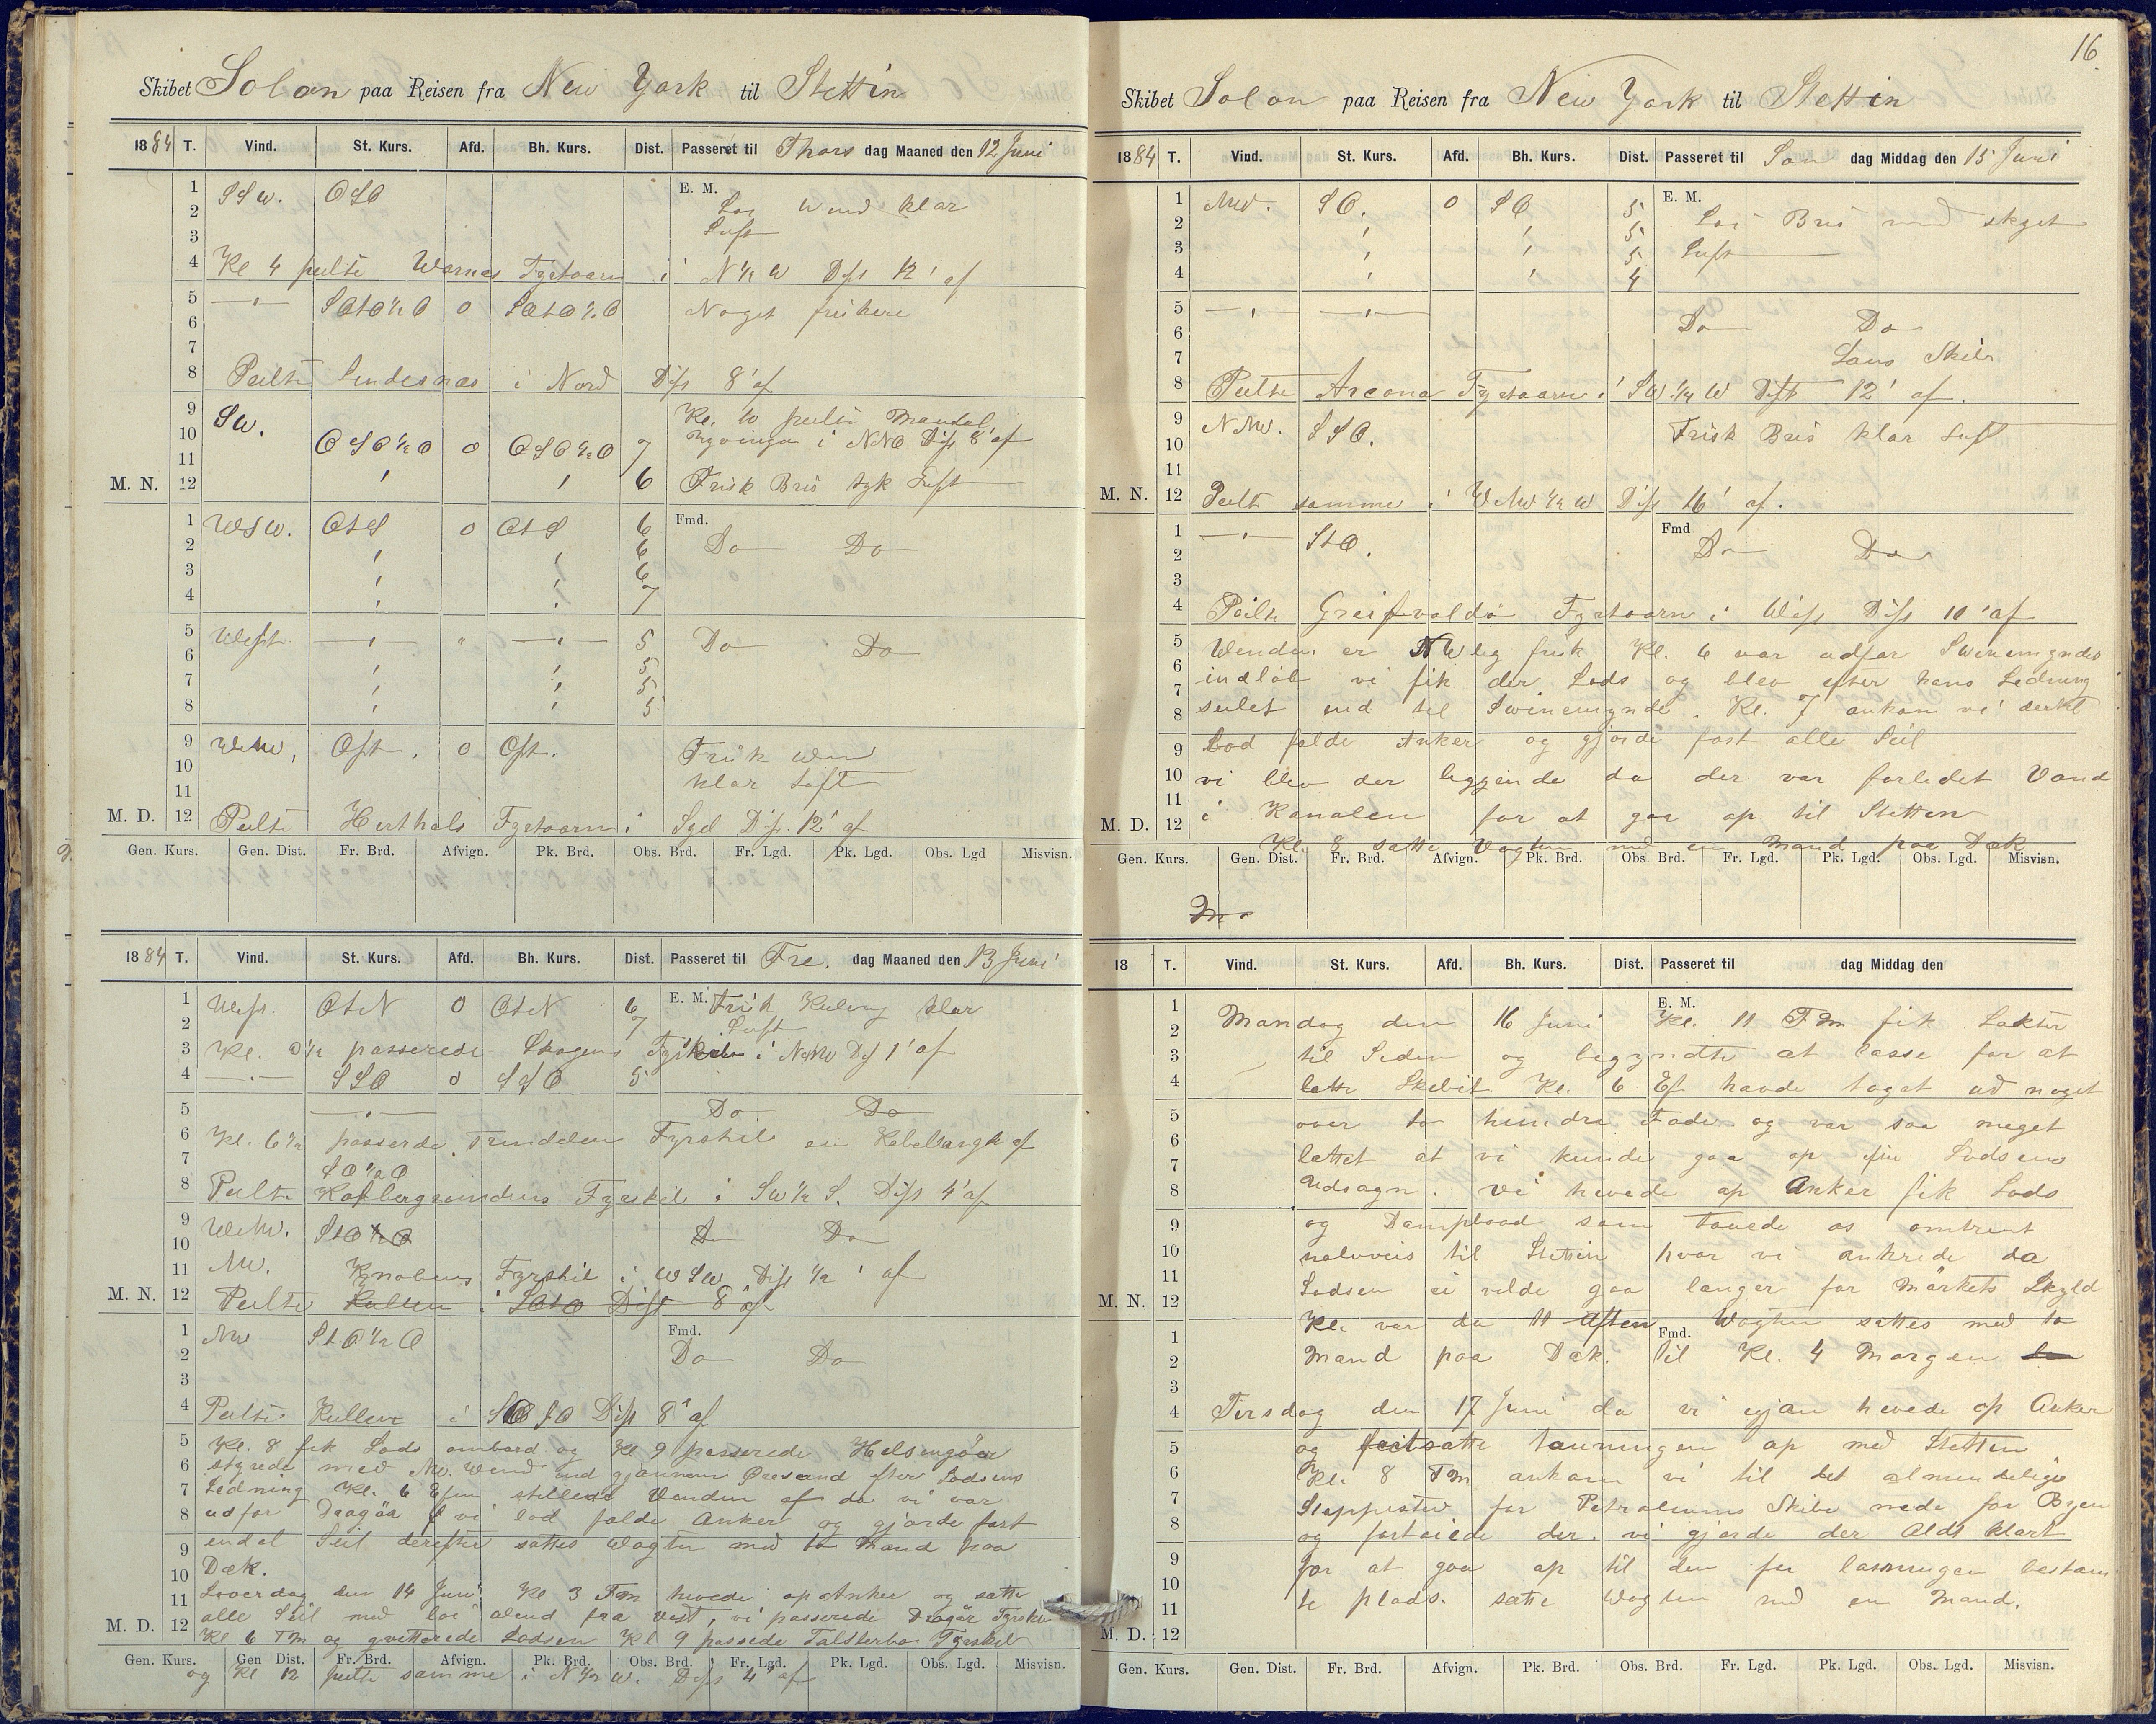 Skibet Solon paa Reisen fra New York til Stettin
1884 T. Vind. St. Kurs. Afd. Bh. Kurs. Dist. Passeret til Thors dag Maaned den 12 Juni
1 SSW. OSO E. M.
2 Loi Wind klar
3 Luft
4 Kl 4 peilte Warnes Fyrtaarn i N ½ W Dist 12' af
5 —"— SOtO½O 0 SOtO½O Noget friskere
6
7
8 Peilte Lindesnæs i Nord Dist 8' af
9 SW. Kl. 10 peilte Mandal
10 OSO½O 0 OSO½O 7 i NNO Dist 8' af
11
M. N. 12 " " 6 Frisk Bris tyk Luft
1 WSW. OtS 0 OtS 6 Fmd.
2 " " 6 Do Do
3 " " 6
4 " " 7
5 West —"— " —"— 5 Do Do
6 " " 5
7 " " 5
8 " " 5
9 WNW, Ost. 0 Ost. Frisk Win
10 klar Luft
11
M. D. 12 Peilte Herthals Fyrtaarn i Syd Dist. 12' af
Gen. Kurs. Gen. Dist. Fr. Brd. Afvign. Pk. Brd. Obs. Brd. Fr. Lgd. Pk. Lgd. Obs. Lgd Misvisn.
1884 T. Vind. St. Kurs. Afd. Bh. Kurs. Dist. Passeret til Fre. dag Maaned den 13 Juni
1 West. OtN 0 OtN 6 E. M. Frisk Kuling klar
2 7 Luft
3 Kl. passerede Skagens i Dist 1' af
4 —"— SSO 0 SSO 5
5 —"— Do Do
6 Kl. 6½ passerde Trindelen Fyrskib en Kabelængde af
7 SO½O
8 Peilte Kobbergrundens Fyrskib i SW½S. Dist 4' af
9 WNW. StO½O Do Do
10
11 NW. Knobens Fyrskib i WSW Dist ½' af
M. N. 12 Peilte Kullen i SOtO Dist 8' af
1 NW StO½O Fmd.
2 Do Do
3
4 Peilte Kullen i SO Dist 8' af
5 Kl. 8 fik Lods ombord og Kl 9 passerede Helsingör
6 styrede med NW. Wind ind gjønnem Øresund efter Lodsens
7 Ledning Kl. 6 Efm stillede Vinden af da vi var
8 udfor Dragör vi lod falde Anker og gjorde fast
9 endel Seil derefter sattes Wagten med to Mand paa
10 Dæk.
11 Löverdag den 14 Juni Kl 3 Fm hevede op Anker og satte
12 alle Seil med loi Wind fra Vest, vi passerede Dragör Fyrskib
M. D. Kl 6 Fm og qvitterede Lodsen Kl 9 passede Falsterbo Fyrskib
Gen. Kurs. Gen Dist. Fr. Brd. Afvign. Pk. Brd. Obs. Brd. Fr. Lgd. Pk. Lgd. Obs. Lgd. Misvisn.
og Kl 12 peilte samme i N½W. Dist 4' af
16
Skibet Solon paa Reisen fra New York til Stettin
1884 T. Vind. St. Kurs. Afd. Bh. Kurs. Dist. Passeret til Søn dag Middag den 15 Juni
1 NW. SO. 0 SO 5 E. M.
2 " " 5 Loi Bris med skyet
3 " " 5 Luft
4 " " 4
5 —"— —"—
6 Do Do
7 Lans Skib
8 Peilte Arcona Fyrtaarn i SW.¼W Dist 12' af.
9 NNW. SSO. Frisk Bris klar Luft
10
11
M. N. 12 Peilte samme i WNW½W Dist 16' af.
1 —"— StO. Fmd
2 Do Do
3
4 Peilte Greifvaldö Fyrtaarn i West Dist 10' af
5 Winden er NWlig frisk Kl. 6 var udfor Swinemynde
6 indlöb vi fik der Lods og blev efter hans Ledning
7 seilet ind til Swinemynde. Kl. 7 ankom vi derté
8 Lod falde Anker og gjorde fast alle Seil
9 vi blev der liggende da der var forledet Vand
10 i Kanalen for at gaa op til Stettin
M. D. 12 Kl. 8 satte Vagten med en Mand paa Dæk
Gen. Kurs. Gen. Dist. Fr. Brd. Afvign. Pk. Brd. Obs. Brd. Fr. Lgd. Pk. Lgd. Obs. Lgd. Misvisn.
18 T. Vind. St. Kurs. Afd. Bh. Kurs. Dist. Passeret til dag Middag den
1 E. M.
2 Mandag den 16 Juni Kl. 11 Fm fik Lækter
3 til Siden og begyndte at losse for at
4 lætte Skibet Kl. 6 Ef havde taget ud noget
5 over to hundre Fade og var saa meget
6 lættet at vi kunde gaa op efter Lodsens
7 Udsagn. vi hevede op Anker fik Lods
8 og Dampbaad som touede os omtrent
9 halvveis til Stettin hvor vi ankrede da
10 Lodsen ei vilde gaa længer for Mörkets Skyld
M. N. 12 Kl. var da 11 Aften Wagten sattes med to
1 Fmd.
2 Mand paa Dæk. til Kl. 4 Morgen
3
4 Tirsdag den 17 Juni da vi igjen hevede op Anker
5 og fortsatte touningen op mod Stettin
6 Kl. 8 Fm ankom vi til det almindelige
7 Stoppested for Petroleums Skibe nede for Byen
8 og fortöiede der. vi gjorde der Aldt klart
9 for at gaa op til den for lasningen bestem
10 te plads. satte Wagten med en Mand.
11
M. D. 12
Gen. Kurs. Gen. Dist. Fr. Brd. Afvign. Pk. Brd. Obs. Brd. Fr. Lgd. Pk. Lgd. Obs. Lgd. Misvisn.